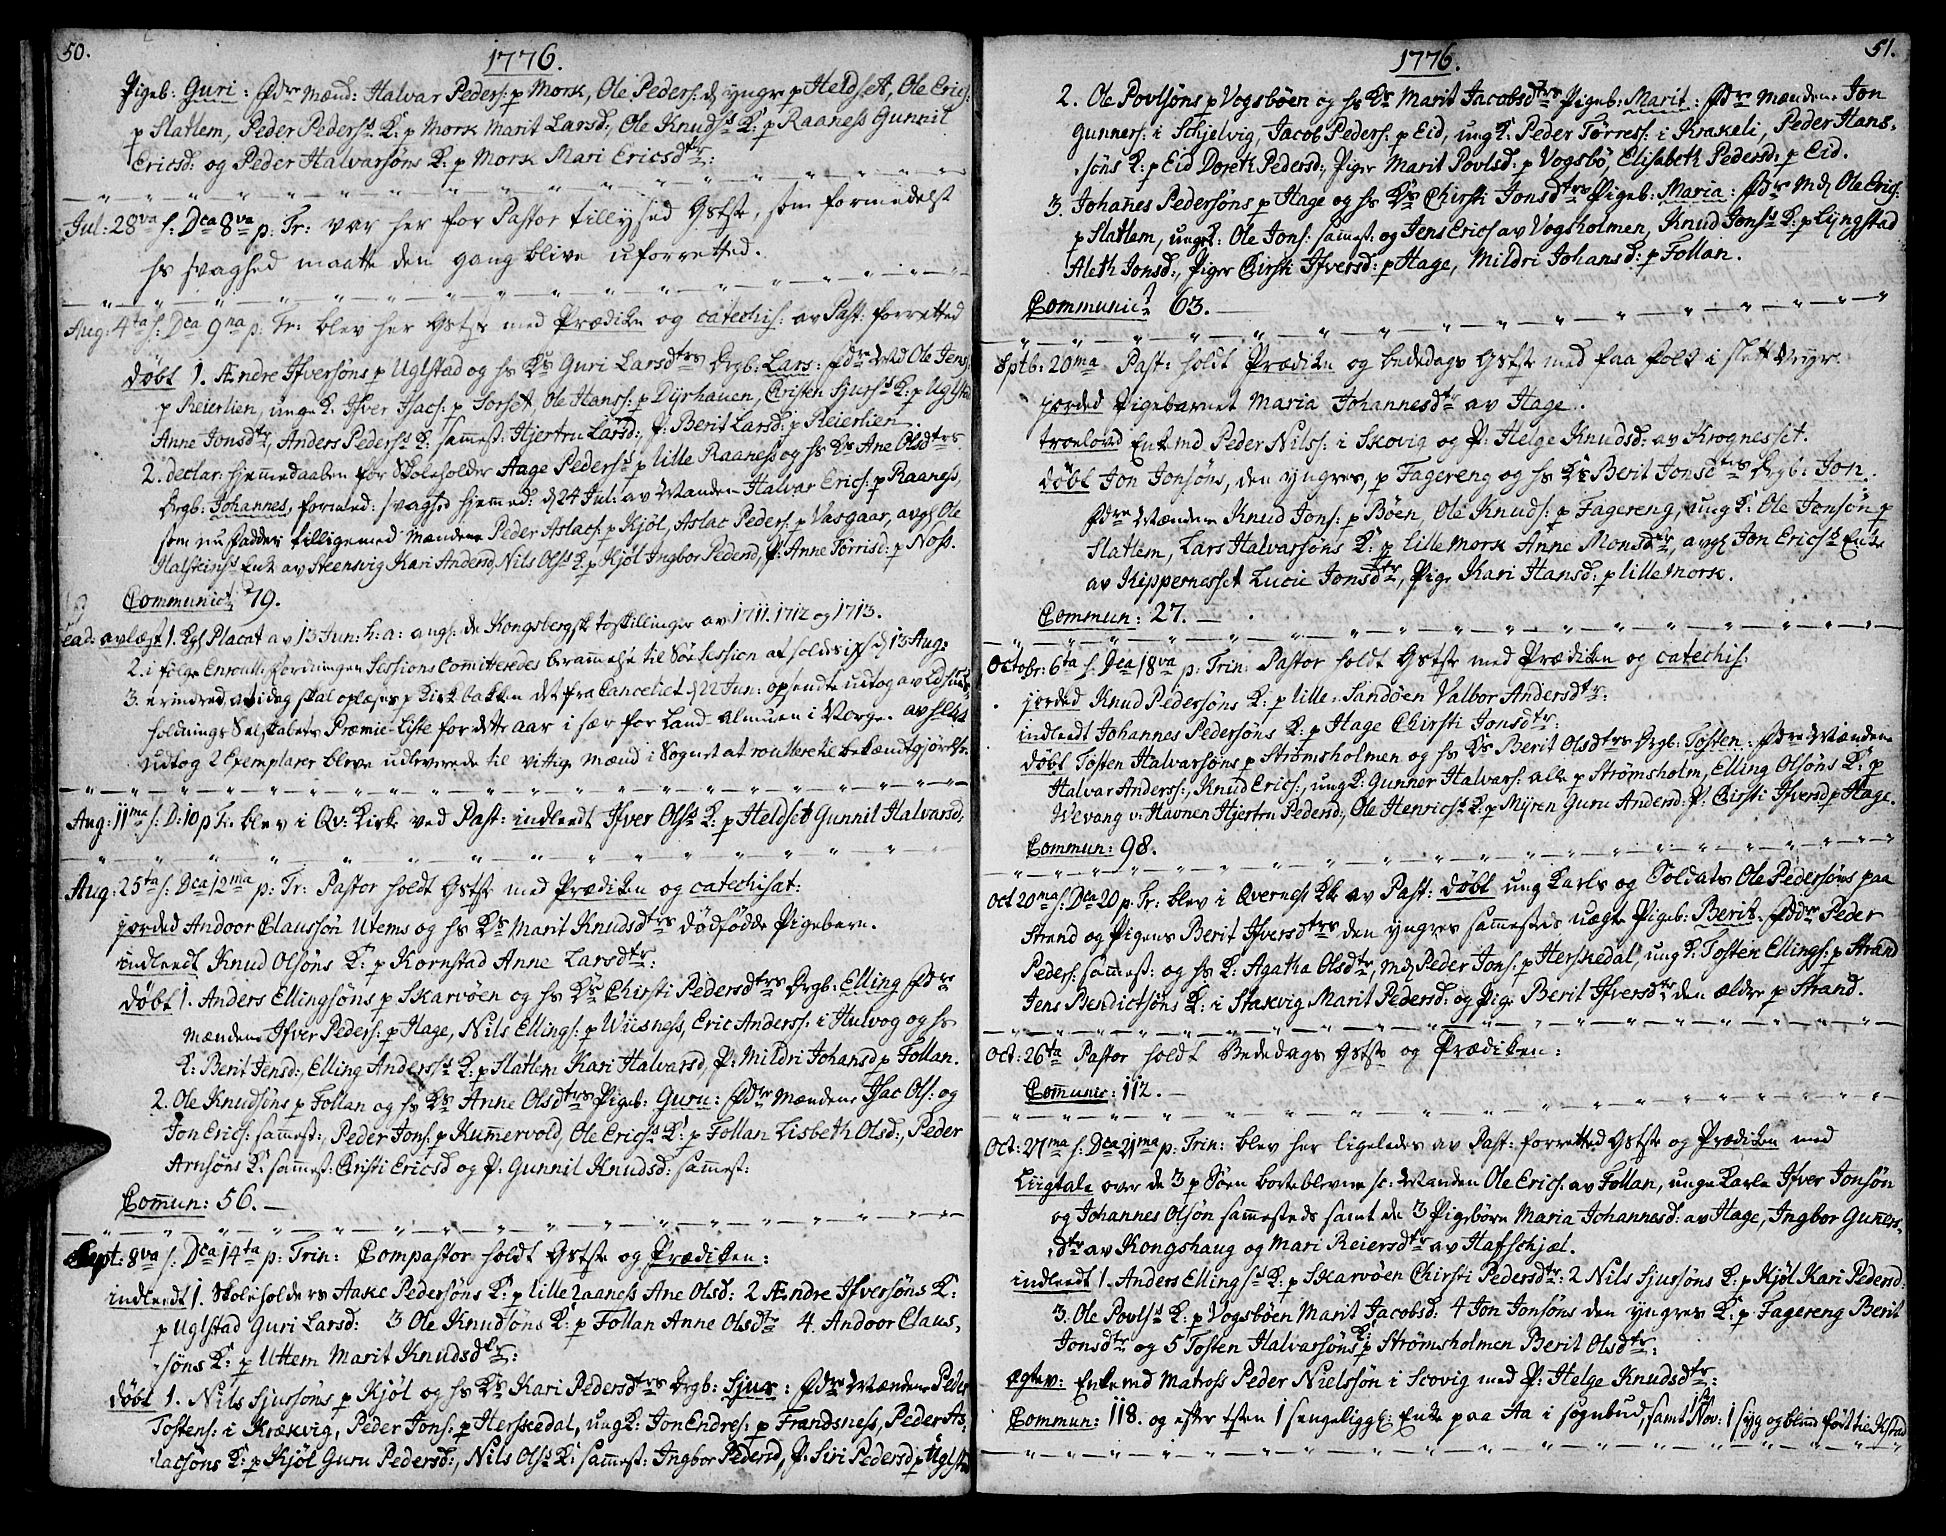 50.
1776.
Pigeb: Guri: Fdre Mænd: Halvar Peders: p Mork, Ole Peders: d yngr p Heldset, Ole Erics:
p Slatlem, Peder Peders: K: p Mork Marit Larsd:, Ole Knuds: K: p Raaness Gunnil
Ericsd: og Peder Halvarsöns K: p Mork Mari Ericsdtr:
Jul: 28va s: Dca 8va p: Tr: var her for Pastor tillyst Gstste, som formedelst
hs svaghed maatte den gang blive uforretted.
Aug: 4ta s: Dca 9na p: Tr: blev her Gstste med Prædiken og catechis: av Past: forretted
döbt 1. Ændre Ifversöns p Uglstad og hs Ks Guri Larsdtrs Drgb: Lars: Fdre Md Ole Jens:
p Reierlien, unge K: Ifver Isacs: p Sorset, Ole Hanss: p Dyrhauen, Cristen Sjurss K: p Uglsta
Anne Jonsdtr, Anders Peders: K: samest: Hjertru Larsd:, P: Berit Larsd: p Reierlien.
2. declar: hjemmedaaben for Skoleholder Aage Peders: p lille Raaness og hs Ks Ane Olsdtrs
Drgb: Johannes, formed: svaghed hjemmed: d 24 Jul: av Manden Halvar Erics: p Raaness,
som nu fadder tilligemed Mændene Peder Aslacs: p Kjöl, Aslac Peders: p Vasgaar, avgl Ole
Halsteins: Enk av Steensvig Kari Andersd, Nils Olss K: p Kjöl Ingbor Pedersd, P: Anne Törrisd: p Noss.
Communict 79.
avlæst 1. Kgl Placat av 13 Jun: h: a: angl: de Kongsbergsk toskillinger av 1711. 1712 og 1713.
2. i fölge Enroull: fordningen Sessions Comiteredes berammelse til Söe Session d 13 Aug:
3. erindred at i dag skal oplæses p Kirkbakken det fra Cancelliet d 22 Jun: opsendte udtog av Ldhuus
holdnings Selskabets Præmie Liste for dette aar i sær for Land Almuen i Norge. av hvilket
udtog 2 Exemplarer bleve udleverede til vittige Mænd i Sognet at roullere til bekændtgjörelse.
Aug: 11ma s: D: 10 p Tr: blev i Qv: Kirke ved Past: indleedt Ifver Olss K: p Heldset Gunnil Halvarsd:
Aug: 25ta s: Dca 12ma p: Tr: Pastor holdt Gstste med Prædiken og catechisat:
jorded Andoor Claussön Utems og hs Ks Marit Knudsdtrs dödfödde Pigebarn.
indleedt Knud Olsöns K: p Kornstad Anne Larsdtr:
döbt 1. Anders Ellingsöns p Skarvöen og hs Ks Chirsti Pedersdtrs Drgb: Elling Fdre
Mændene Ifver Peders: p Hage, Nils Ellings: p Wiisness, Eric Anderss: i Hulvog og hs
K: Berit Jensd:, Elling Anderss K: p Slatlem Kari Halvarsd, P: Mildri Johansd p Follan.
2. Ole Knudsöns p Follan og hs Ks Anne Olsdtrs Pigeb: Guru: Fdre Mændene Isac Ols: og
Jon Erics: samest:, Peder Jons: p Kumervold, Ole Ericss K: p Follan Lisbeth Olsd:, Peder
Arnsöns K: samest: Christi Ericsd og P: Gunnil Knudsd: samest:
Comun: 56.
Sept: 8va s: Dca 14ta p: Trin: Compastor holdt Gstste og Prædiken:
indleedt 1. Skoleholders Aake Pedersöns K: p lille Raaness Ane Olsd: 2 Ændre Ifversöns K:
p Uglstad Guri Larsd: 3 Ole Knudsöns K: p Follan Anne Olsdtr 4. Andoor Claus,
söns K: p Uttem Marit Knudsdtr:
döbt 1. Nils Sjursöns p Kjöl og hs Ks Kari Pedersdtrs Drgb: Sjur: Fdre Mændene Peder
Tostens: i Krækvig, Peder Jons: p Herskedal, ung K: Jon Endres: p Frandsness, Peder As,
lacsöns K: p Kjöl Guru Pedersd:, Nils Olss K: samest: Ingbor Pedersd, P: Siri Pedersd p Uglsta
51.
1776.
2. Ole Povlsöns p Vogsböen og hs Ks Marit Jacobsdtrs Pigeb: Marit: Fdre Mændene Jon
Gunners: i Schjelvig, Jacob Peders: p Eid, ung K: Peder Törres: i Krakeli, Peder Hans,
söns K: p Eid Doreth Pedersd:, Piger Marit Povlsd: p Vogsbö Elisabeth Pedersd: p Eid.
3. Johanes Pedersöns p Hage og hs Ks Chirsti Jonsdtrs Pigeb: Maria: Fdre Md Ole Erics:
p Slatlem, unge K: Ole Jons: samest: og Jens Erics av Vogsholmen, Knud Jonss K: p Lyngstad
Aleth Jonsd:, Piger Chirsti Ifversd: p Hage, Mildri Johansd: p Follan.
Communict 63.
Sptb: 20ma Past: holdt Prædiken og bededags Gstste med faa folk i slett Veyr.
jorded Pigebarnet Maria Johannesdtr av Hage.
troelovd Enkemd Peder Nilss: i Skovig og P: Helge Knudsd: av Krognesset.
döbt Jon Jonsöns, den yngres, p Fagereng og hs Ks Berit Jonsdtrs Drgb: Jon.
Fdre Mændene Knud Jons: p Böen, Ole Knuds: p Fagereng, ung K: Ole Jonsön p
Slatlem, Lars Halvarsöns K: p lille Mork Anne Monsdtr, avgl Jon Ericss Enke
av Kippernesset Lucie Jonsdtr, Pige Kari Hansd: p lille Mork.
Commun: 27.
Octobr: 6ta s: Dca 18va p: Trin: Pastor holdt Gstste med Prædiken og catechis:
jorded Knud Pedersöns K: p lille Sandöen Valbor Andersdtr:
indleedt Johannes Pedersöns K: p Hage Chirsti Jonsdtr:
döbt Tosten Halvarsöns p Strömsholmen og hs Ks Berit Olsdtrs Drgb: Tosten: Fdre Mændene
Halvar Anderss:, Knud Erics:, ung K: Gunner Halvars: alle p Strömsholm, Elling Olsöns K: p
Wevang v: Havnen Hjertru Pedersd:, Ole Henricss K: p Myren Guru Andersd: P: Chirsti Ifversd p Hage.
Commun: 98.
Oct 20ma s: Dca 20 p: Tr: blev i Qvernes Kk av Past: döbt ung Karls og Soldats Ole Pedersöns paa
Strand og Pigens Berit Ifversdtrs den yngres samesteds uægte Pigeb: Berit. Fddre Peder
Peders: samest: og hs K: Agatha Olsdtr, Md Peder Jons: p Herskedal, ung K: Tosten Ellings: p Strand
Jens Bendictsöns K: i Stakvig Marit Pedersd: og Pige Berit Ifversdtr den ældre p Strand.
Oct: 26ta Pastor holdt Bededags Gstste og Prædiken:
Communic: 112.
Oct: 27ma s: Dca 21ma p: Trin: blev her ligeledes av Past: forretted Gstste og Prædiken med
Liigtale over de 3 p Söen bortblevne sc: Manden Ole Erics: av Follan, unge Karle Ifver Jonsön
og Johannes Olsön samesteds samt de 3 Pigebörn Maria Johannesd: av Hage, Ingbor Guners,
dtr av Kongshaug og Mari Reiersdtr av Hafschjæl.
indleedt 1. Anders Ellingss K: p Skarvöen Chirsti Pedersdtr: 2 Nils Sjursöns K: p Kjöl Kari Pedersd:
3. Ole Povlss K: p Vogsböen Marit Jacobsd: 4 Jon Jonsöns den yngres K: p Fagereng Berit
Jonsdtr og 5 Tosten Halvarsöns K: p Strömsholmen Berit Olsdtr:
ægtev: Enkemd Matross Peder Nielssön i Scovig med P: Helge Knudsdtr:
Commun: 118. og efter tsten 1 sengeliggl: Enke paa Aa i sognbud, samt Nov: 1 syg og blind